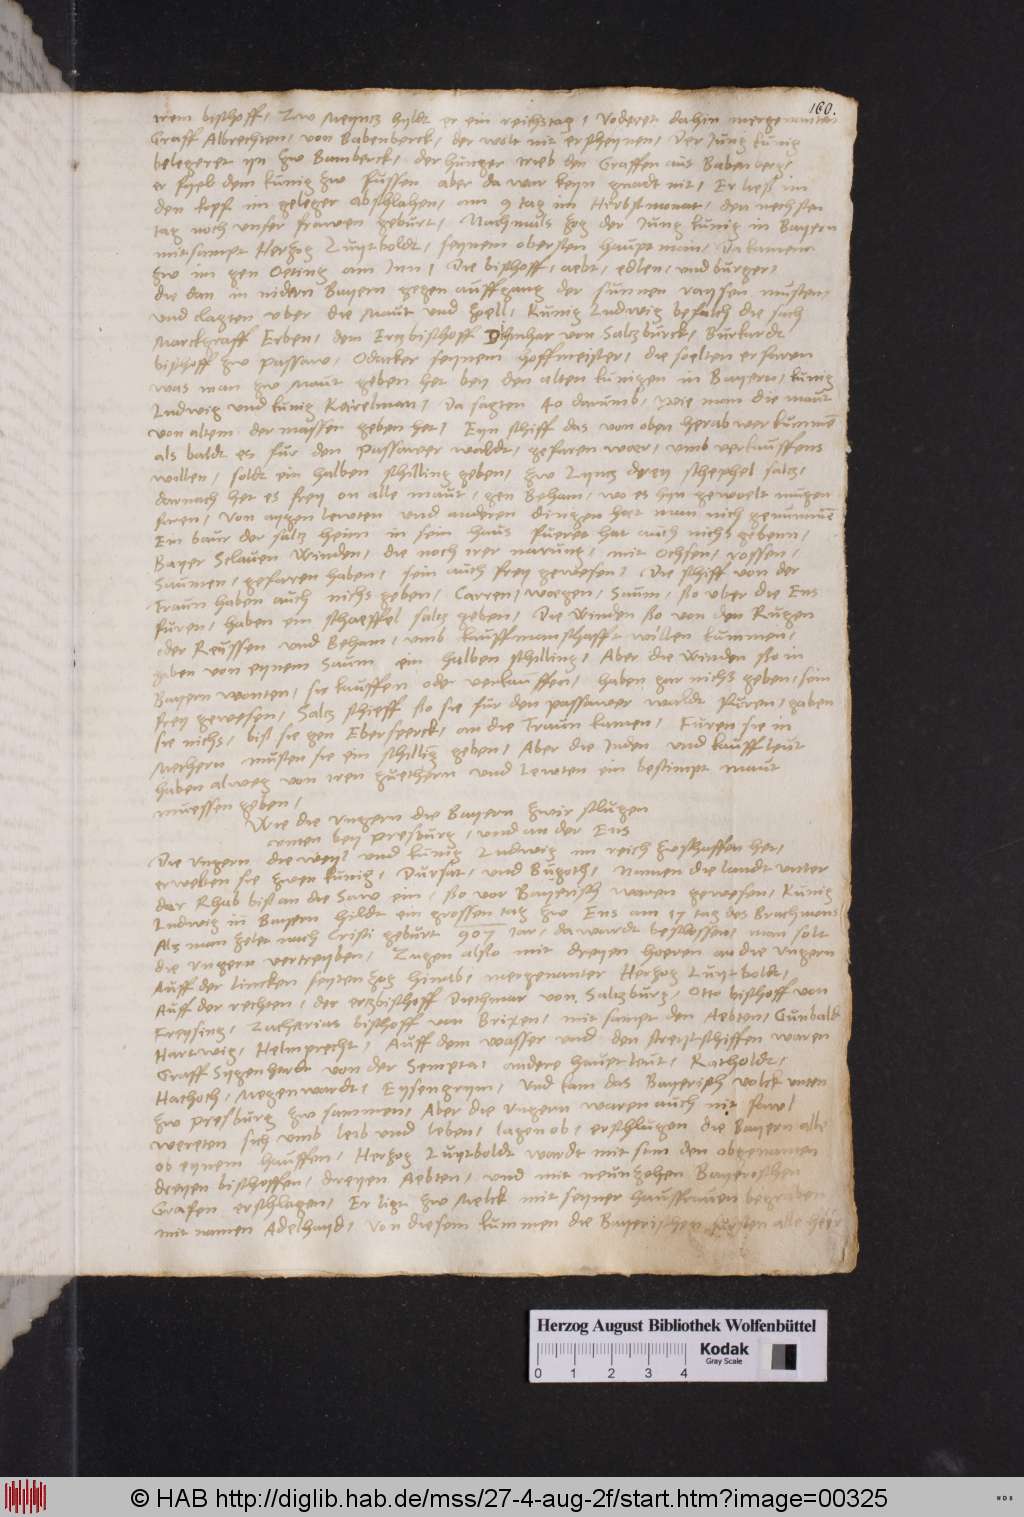 160.
irem bischoff, Zw Meyncz hyldt er ein reichstag, Voderet dahin mergenanten
Graff Albrechten, von Babenberck, der wolt nit erscheynen, Der Jung kunig
belegeret yn zw Bamberck, der hunger trieb den Graffen aus Babenberg,
er fyel dem kunig zw fussen aber da war keyn gnadt nit, Er liess im
den kopf im geleger abschlahen, am 9 tag im Herbstmonat, den nechsten
tag noch unser frawen geburt, Nachmals zog der Jung kunig in Bayern
mitsampt Herzog Luytboldt, seynem obersten hauptman, Da kamen
zw im gen Oeting am Inn, Die bischoff, aebt, edlen, und burger,
die dan in nidern Bayern gegen auffgang der sunnen raysen musten,
und clagten uber die Maut und zoll, Kunig Ludwig befalch die sach
Marckgraff Erben, dem Erzbischoff Dithmar von Salczburck, Burkardt
bischoff zw Passaw, Odacker seynem hoffmeister, die solten erfaren
was man zw Maut geben het bey den alten kunigen in Bayern, kunig
Ludwig und kunig Karelman, Da sagten 40 darumb, wie man die maut
von altem der massen geben het, Eyn schiff das von oben herab wer kummen
als baldt es fur den Passawer waldt, gefaren war, umb verkauffens
wollen, soldt ein halben schilling geben, zw Lyncz dreyy schephel salcz,
darnach het es frey on alle maut, gen Beham, wo es hyn gewoelt mugen
faren, Von aygen lewten und anderen dingen hat man nich genummen
Ein baur der salcz heim in sein haus fueret hat auch nichs gebenn,
Bayer Sclauen Winden, die noch irer narung, mit Ochsen, rossen,
Saumen, gefarren haben, sein auch frey gewesen, Die schiff von der
Traun haben auch nichs geben, Carren, waegen, Saum, so uber die Ens
furen, haben ein schaeffel salcz geben, Die Winden so von den Rugen
oder Reussen und Beham, umb kauffmanschafft willen kummen,
gaben von eynem Saum ein halben schilling, Aber die Winden so in
Bayern wonten, sie kauffen oder verkauffen, haben gar nichs geben, sein
frey gewesen, Salcz schieff so sie fur den passawer waldt furen, gaben
sie nichs, biss sie gen Ebersperck, an die Traun kamen, Furen sie in
Merhern musten sie ein schilling geben, Aber die Juden und kauffleut
haben alweg von iren guethern und Lewten ein bestimpt maut
muessen geben,
Wie die Ungern die Bayern zwir schlugen
unten bey presburg, und an der Ens
Die Ungern dieweyl und kunig Ludwig im reich zwschaffen het,
erwelten sie zwen kunig, Dursac, und Bugoth, Namen die landt unter
der Rhab bis an die Saw ein, so vor Bayerisch waren gewesen, Kunig
Ludwig in Bayern hildt ein grossen tag zw Ens am 17 tag des Brachmons
Als man zelet nach Cristi geburt 907 Jar, da wardt beschlossen, man solt
die Ungern vertreyben, Zugen also mit dreyen hoeren an die Ungern
Auff der lincken seyten zog hinab, mergenanter Herzog Luytboldt,
Auff der rechten, der ertzbischoff Diethmar von Saltzburg, Otto bischoff von
Freysing, Zacharias bischoff von Brixen, mit sampt den Aebten, Gunbaldt
Hartwig, Helmprecht, Auff dem wasser und den streytschiffen waren
Graff Sygenhardt von der Sempta, andere hauerleut, Ratholdt,
Hathoch, Megenwardt, Eysengrym, Und kam das Bayerisch volck unten
zw presburg zw sammen, Aber die Ungern waren auch nit fawl
wereten sich umb leib und leben, lagen ob, erschlugen die Bayern alle
ob eynem hauffen, Herzog Luytboldt wardt mit sam den obgenanten
dreyen bischoffen, dreyen Aebten, und mit neunzehen Bayerischen
Grafen erschlagen, Er ligt zw Melck mit seyner haussfrawen begraben
mit namen Adelhayd, Von diesem kummen die Bayerischen fursten alle heer
Herzog August Bibliothek Wolfenbüttel
Kodak
Gray Scale
0 1 2 3 4
© HAB http://diglib.hab.de/mss/27-4-aug-2f/start.htm?image=00325